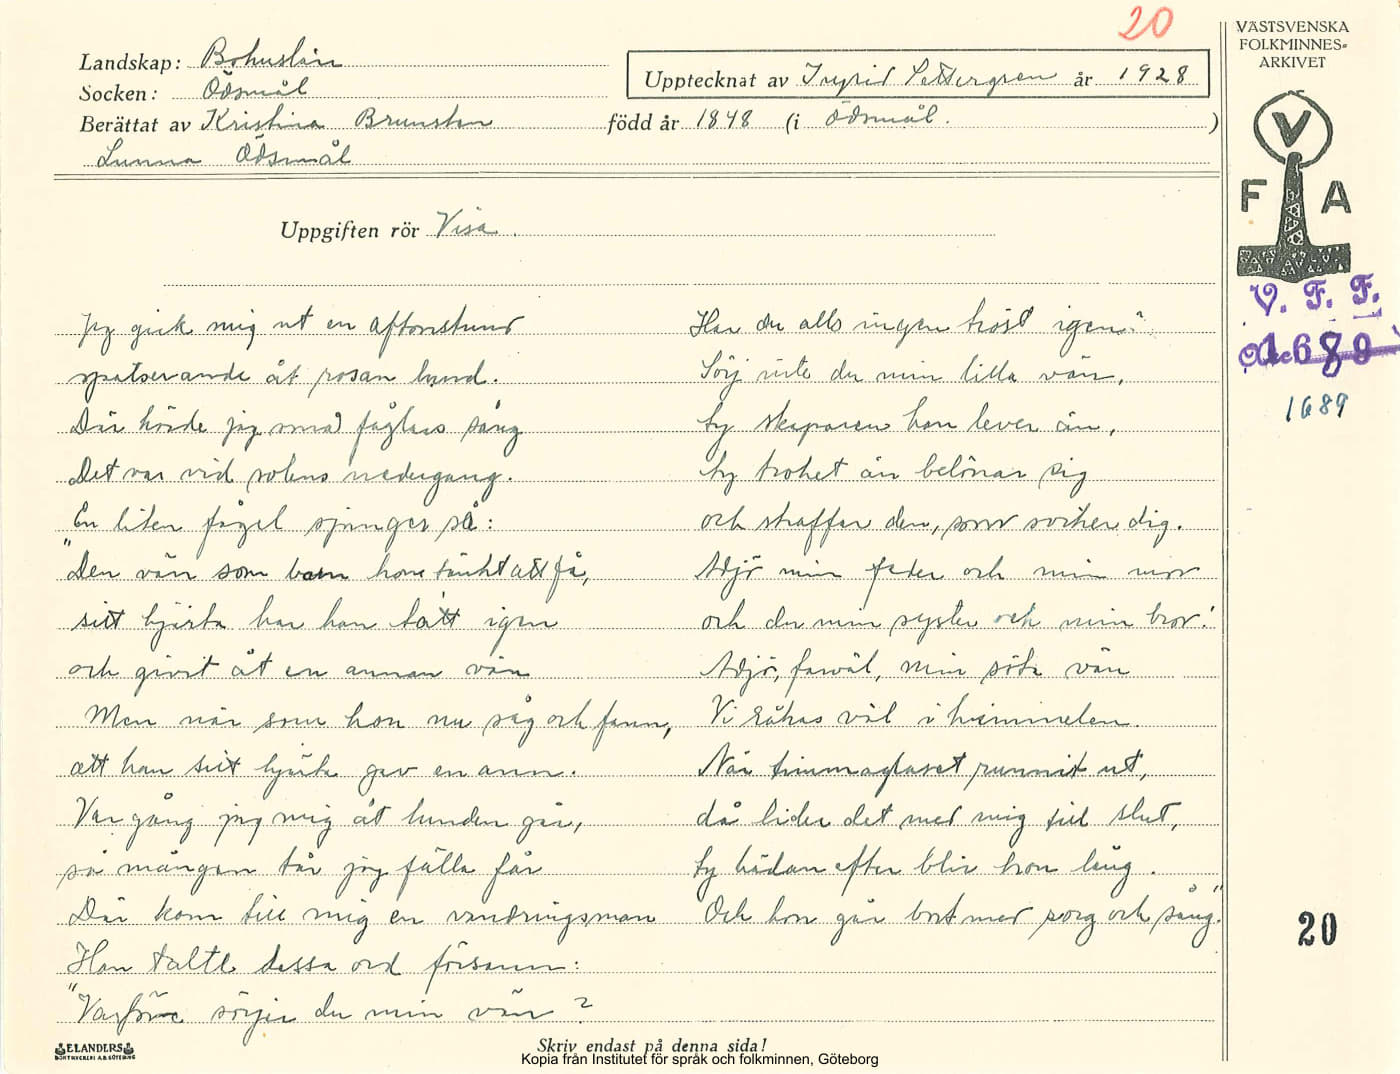 20
Landskap: Bohuslän
Socken: Ödsmål
Upptecknat av Ingrid Pettergren år 1928
Berättat av Kristina Brunsten född år 1848 (i Ödsmål.)
Lunna Ödsmål
Uppgiften rör Visa.
Jag gick mig ut en aftonstund
spatserande åt rosan lund.
Där hörde jag små fåglars sång
Det var vid solens nedergang.
En liten fågel sjunger så:
"Den vän som hon tänkt att få,
sitt hjärta har han tatt igen
och givit åt en annan vän
Men när som hon nu såg och fann,
att han sitt hjärta gav en ann.
Var gång jag mig åt lunden går,
så mången tår jag fälla får
Där kom till mig en vandringsman
Han talte dessa ord försann:
"Varföre sörjer du min vän?
Har du alls ingen tröst igen?
Sörj inte du min lilla vän,
ty skaparen han lever än,
ty trohet än belönar sig
och straffar den, som sviker dig.
Adjö min fader och min mor
och du min syster och min bror!
Adjö, farväl, min söta vän
Vi råkas väl i himmelen.
När timmaglaset runnit ut,
då lider det med mig till slut,
ty hädan efter blir hon lång.
Och hon går bort med sorg och sång."
VÄSTSVENSKA
FOLKMINNES-
ARKIVET
V
F A
V. F. F.
1689
1689
20
ELANDERS
BOKTRYCKERI A.B. GÖTEBORG
Skriv endast på denna sida!
Kopia från Institutet för språk och folkminnen, Göteborg